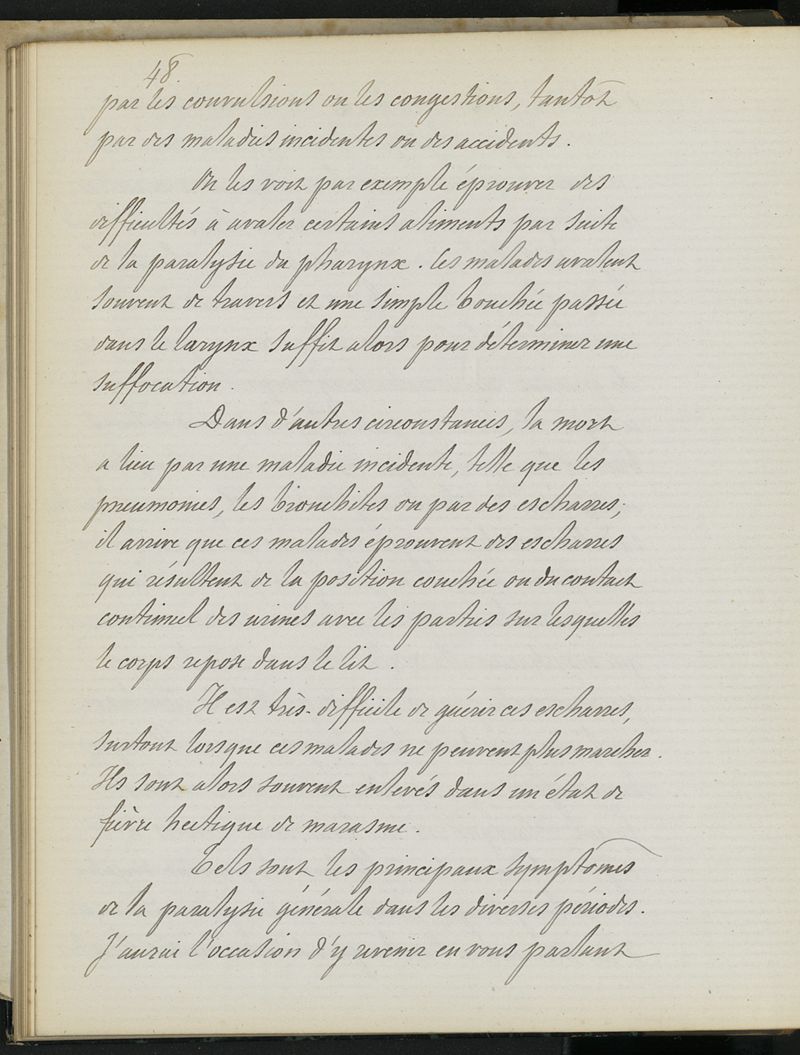 48.
par les convulsions ou les congestions, tantôt
par des maladies incidentes ou des accidents.
On les voit par exemple éprouver des
difficultés à avaler certains aliments par suite
de la paralysie du pharynx. Ces malades avalent
souvent de travers et une simple bouchée passée
dans le larynx suffit alors pour déterminer une
suffocation.
Dans d'autres circonstances, la mort
a lieu par une maladie incidente, telle que les
pneumonies, les bronchites ou par des escharres;
il arrive que ces malades éprouvent des escharres
qui résultent de la position couchée ou du contact
continuel des urines avec les parties sur lesquelles
le corps repose dans le lit.
Il est très-difficile de guérir ces escharres,
surtout lorsque ces malades ne peuvent plus marcher.
Ils sont alors souvent enlevés dans un état de
fièvre hectique de marasme.
Tels sont les principaux symptômes
de la paralysie générale dans les diverses périodes.
J'aurai l'occasion d'y revenir en vous parlant